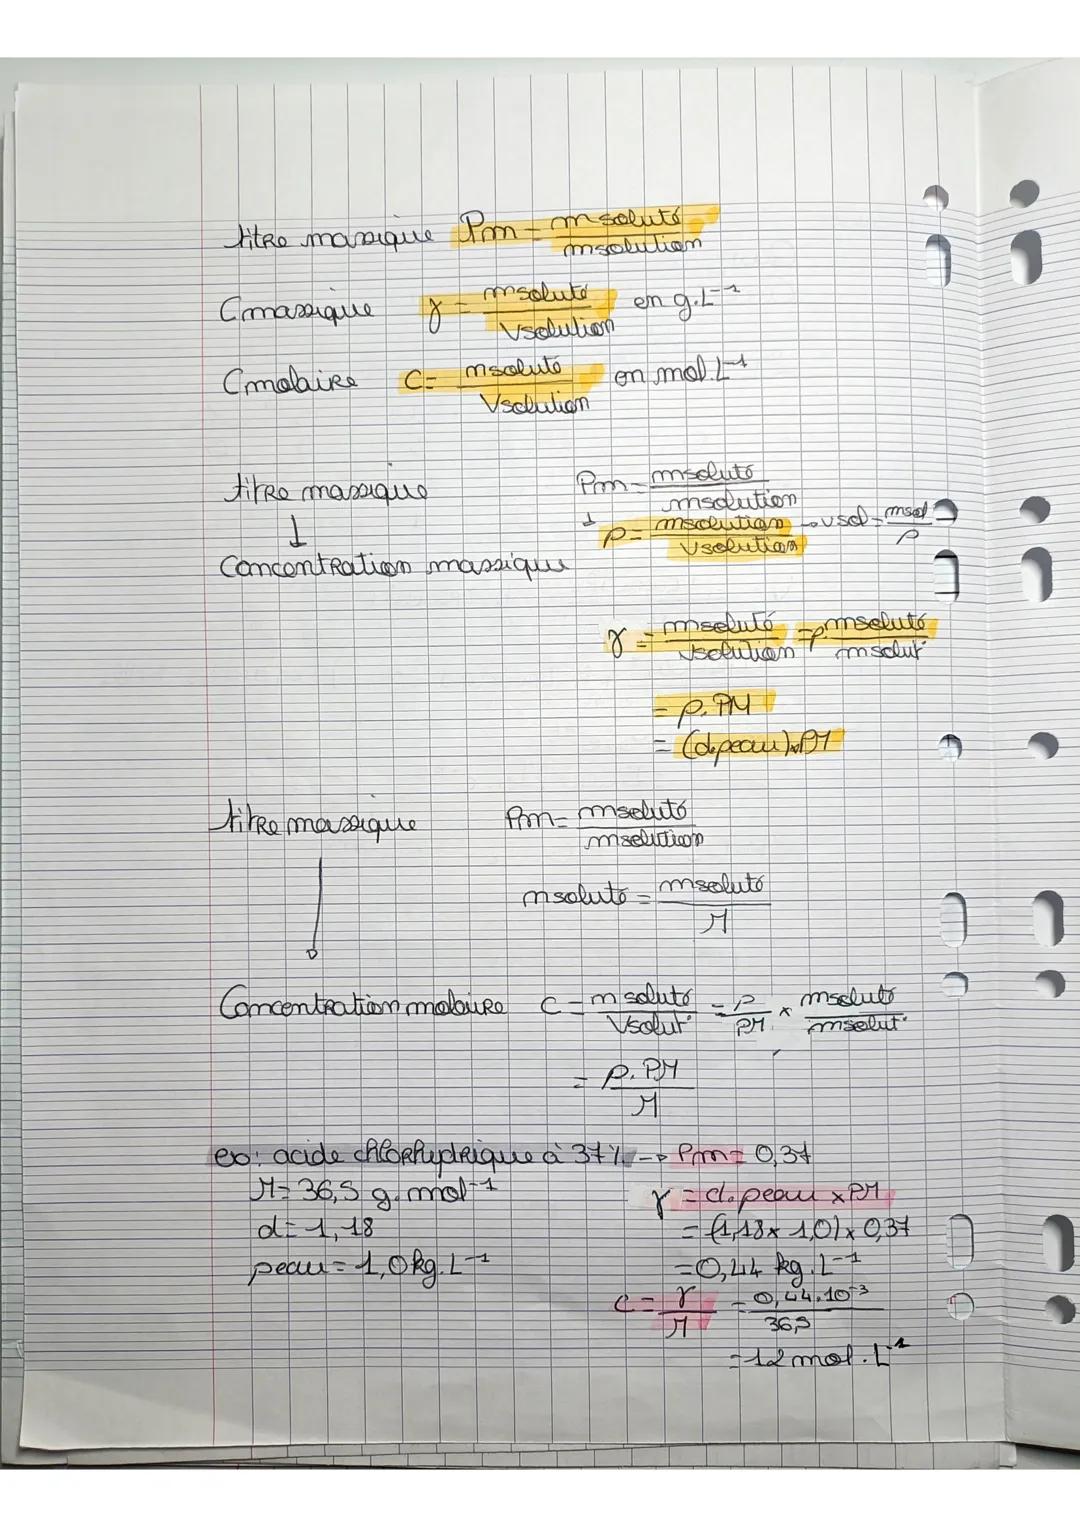 titre massique Pm = msoluté / msolution
Cmassique γ = msoluté / Vsolution en g.L⁻¹
Cmolaire C = nsoluté / Vsolution en mol.L⁻¹
titre massique Pm = msoluté / msolution
↓ ρ = msolution / Vsolution → Vsol = msol / ρ
Concentration massique
γ = msoluté / Vsolution = ρ. msoluté / msolut°
= ρ.PM
= (d.ρeau)xPM
titre massique Pm = msoluté / msolution
nsoluté = msoluté / M
Concentration molaire C = nsoluté / Vsolut° = ρ / PM × msoluté / msolut°
= ρ.PM / M
ex: acide chlorhydrique à 37% → Pm = 0,37
M = 36,5 g.mol⁻¹ γ = d.ρeau x PM
d = 1,18 = (1,18 x 1,0) x 0,37
ρeau = 1,0 kg.L⁻¹ = 0,44 kg.L⁻¹
C = γ / M = 0,44.10⁻³ / 36,5
= 12 mol.L⁻¹